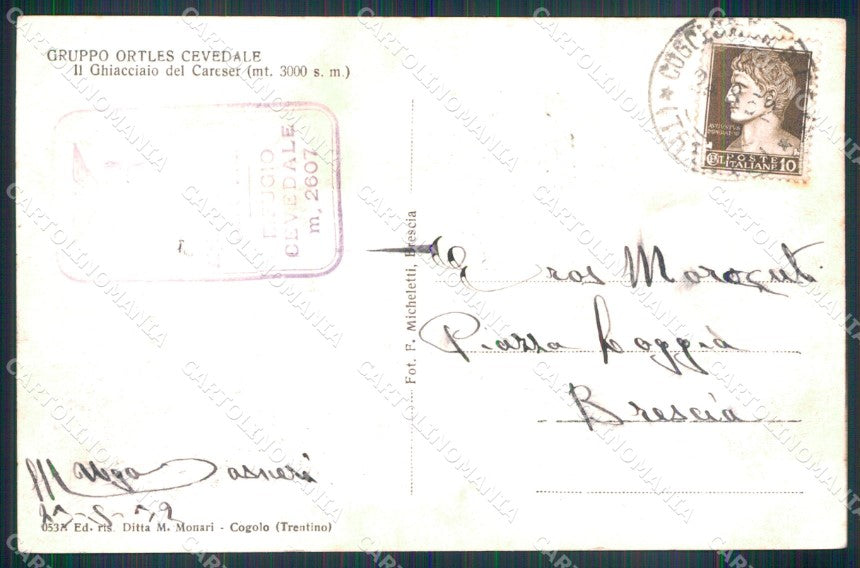 GRUPPO ORTLES CEVEDALE
Il Ghiacciaio del Careser (mt. 3000 s. m.)
RIFUGIO
CEVEDALE
m, 2607
POSTE
ITALIANE 10
Fot. F. Micheletti, Brescia
Eros
Piazza Loggia
Brescia
053A Ed. ris. Ditta M. Monari - Cogolo (Trentino)
CARTOLINOMANIA